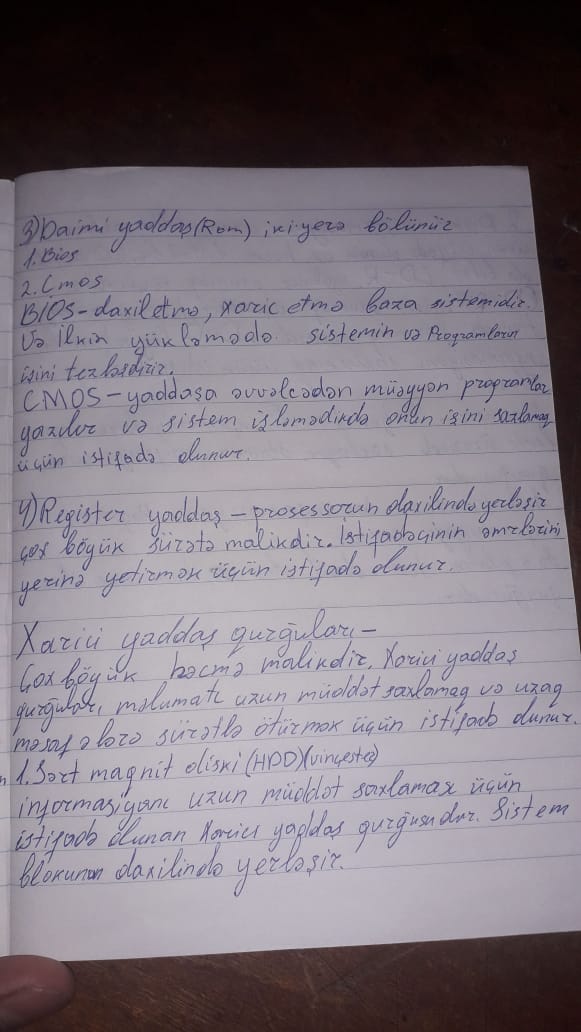 3) Daimi yaddaş (Rom) iki yerə bölünür
1. Bios
2. Cmos
BIOS - daxiletmə, xaric etmə baza sistemidir.
Və ilkin yükləmədə sistemin və Programların
işini tezləşdirir.
CMOS - yaddaşa əvvəlcədən müəyyən programlar
yazılır və sistem işləmədikdə onun işini saxlamaq
üçün istifadə olunur.
4) Register yaddaş - prosessorun daxilində yerləşir
çox böyük sürətə malikdir. İstifadəçinin əmrlərini
yerinə yetirmək üçün istifadə olunur.
Xarici yaddaş qurğuları -
Çox böyük həcmə malikdir. Xarici yaddaş
qurğuları, məlumatı uzun müddət saxlamaq və uzaq
məsafələrə sürətlə ötürmək üçün istifadə olunur.
1. Sərt magnit diski (HDD) (vinçester)
informasiyanı uzun müddət saxlamax üçün
istifadə olunan xarici yaddaş qurğusudur. Sistem
blokunun daxilində yerləşir.